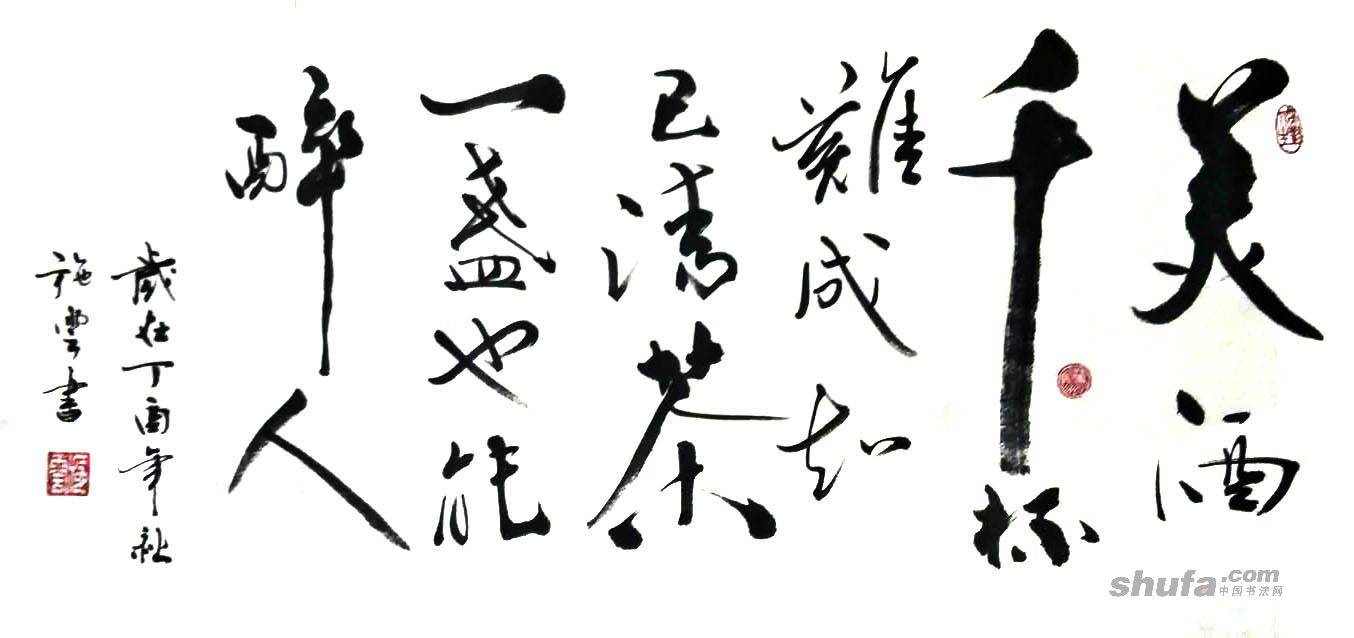 美酒
千杯
難成知
已清茶
一盏也能
醉人
歲在丁酉年秋
施雲書
shufa.com
中国书法网